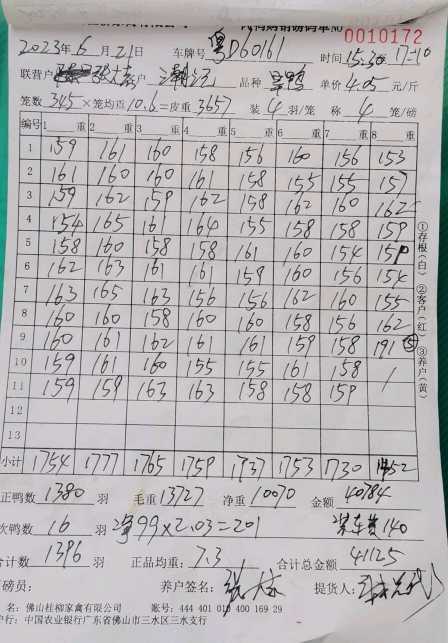 0010172
2023年6月21日 车牌号 粤D60161 时间 15:30 17-10
联营户 户 品种 单价 4.05 元/斤
笼数 345 ×笼均重 10.6 =皮重 3657 装 4 羽/笼 称 4 笼/磅
编号 1 重 2 重 3 重 4 重 5 重 6 重 7 重 8 重
1 159 161 160 158 156 160 156 153
2 161 160 160 161 158 155 155 157
3 159 162 159 162 158 162 160 162
4 154 165 161 164 155 158 158 159
5 158 160 158 158 161 160 154 159
6 162 163 161 161 159 160 156 154
7 163 165 163 156 156 162 160 155
8 160 160 158 160 160 158 156 162
9 160 161 162 161 161 159 158 191 ⑤
10 159 161 160 155 155 161 158 /
11 159 159 163 163 158 158 159
12
13
小计 1754 1777 1765 1759 1737 1753 1730 1452
正鸭数 1380 羽 毛重 13727 净重 10070 金额 40784
次鸭数 16 羽 净99×2.03=201 装车费140
合计数 1396 羽 正品均重: 7.3 合计总金额 41125
磅员: 养户签名: 提货人:
名: 佛山桂柳家禽有限公司 账号: 444 401 010 400 169 29
户行: 中国农业银行广东省佛山市三水区三水支行
①存根(白) ②客户(红) ③养户(黄)